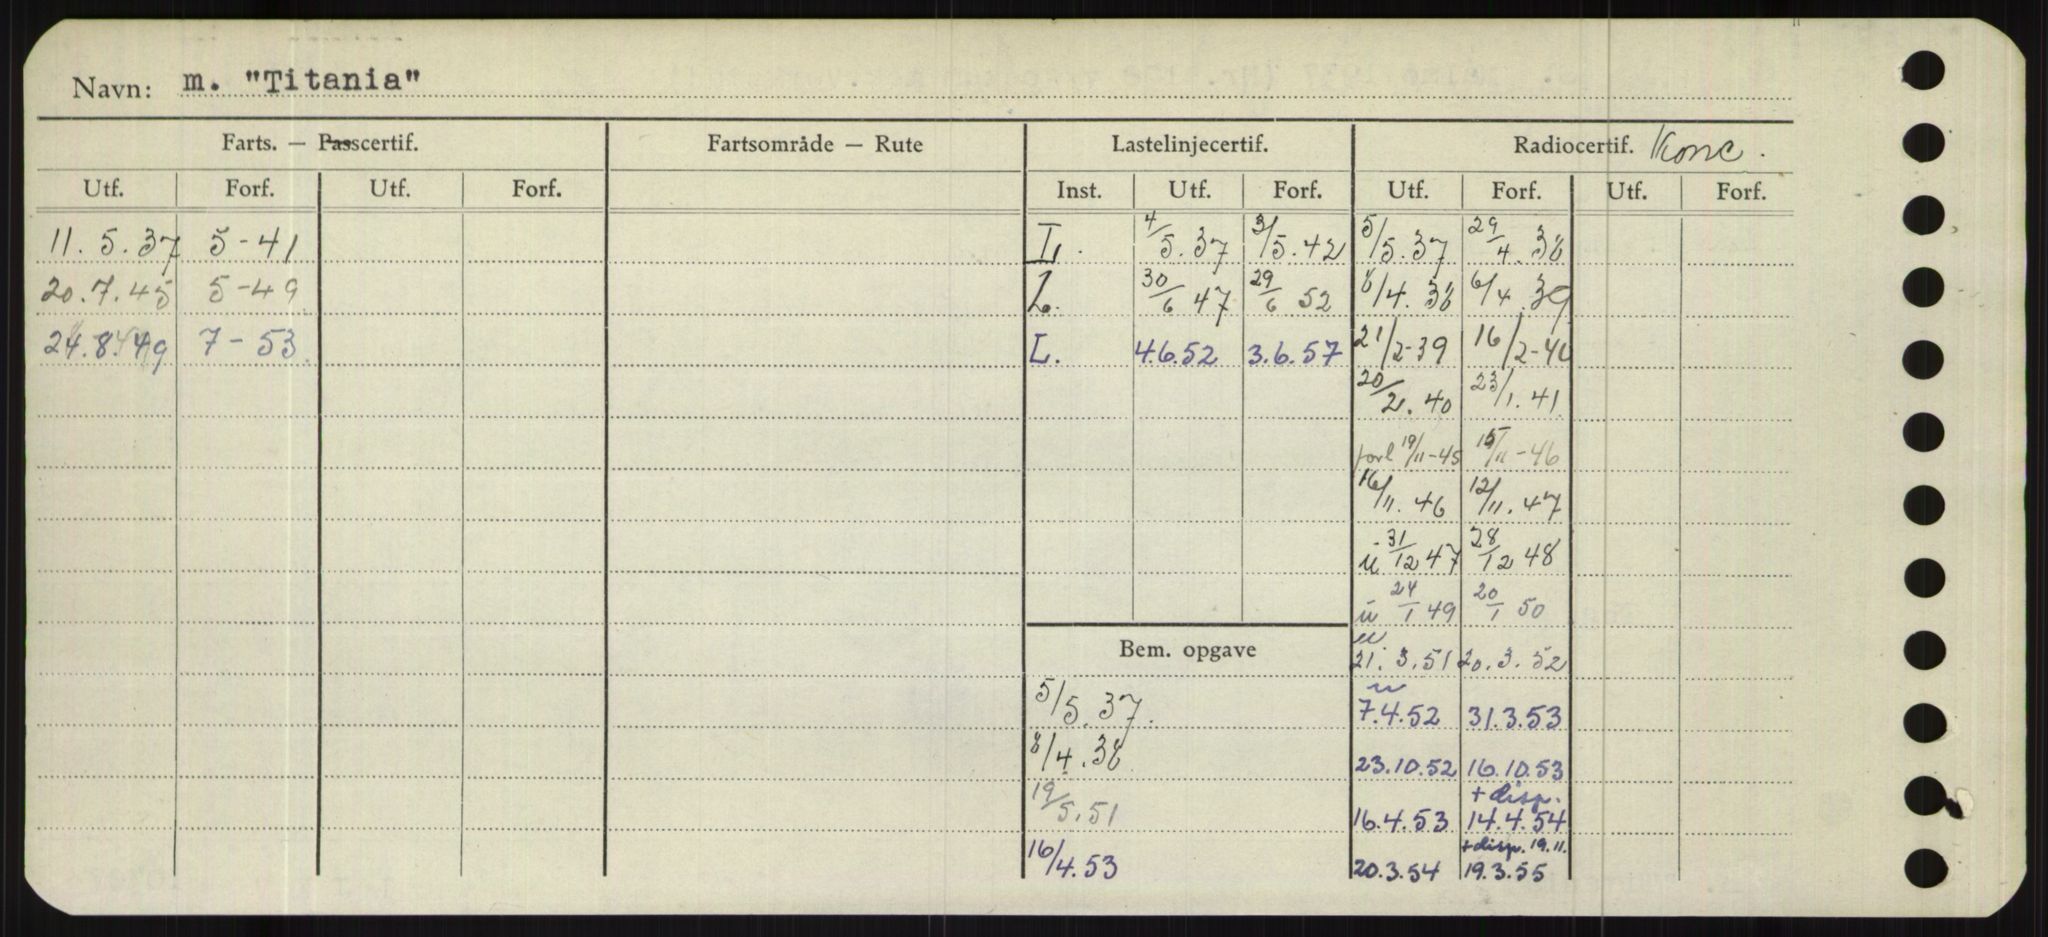 Navn: m. "Titania"
Farts. — Passcertif. Fartsområde — Rute Lastelinjecertif. Radiocertif. Konc.
Utf. Forf. Utf. Forf. Inst. Utf. Forf. Utf. Forf. Utf. Forf.
11.5.37 5-41 L. 4/5.37 3/5.42 5/5.37 29/4.38
20.7.45 5-49 L. 30/6 47 29/6 52 8/4.38 6/4.39
24.8.49 7-53 L. 4.6.52 3.6.57 21/2-39 16/2-40
20/2.40 23/1.41
forl 19/11-45 15/11-46
16/11.46 12/11.47
u 31/12 47 28/12 48
u 24/1 49 20/1 50
u
Bem. opgave 21.3.51 20.3.52
u
5/5.37. 7.4.52 31.3.53
8/4.38 23.10.52 16.10.53
+ disp.
19/5.51 16.4.53 14.4.54
+ disp. 19.11.
16/4.53 20.3.54 19.3.55